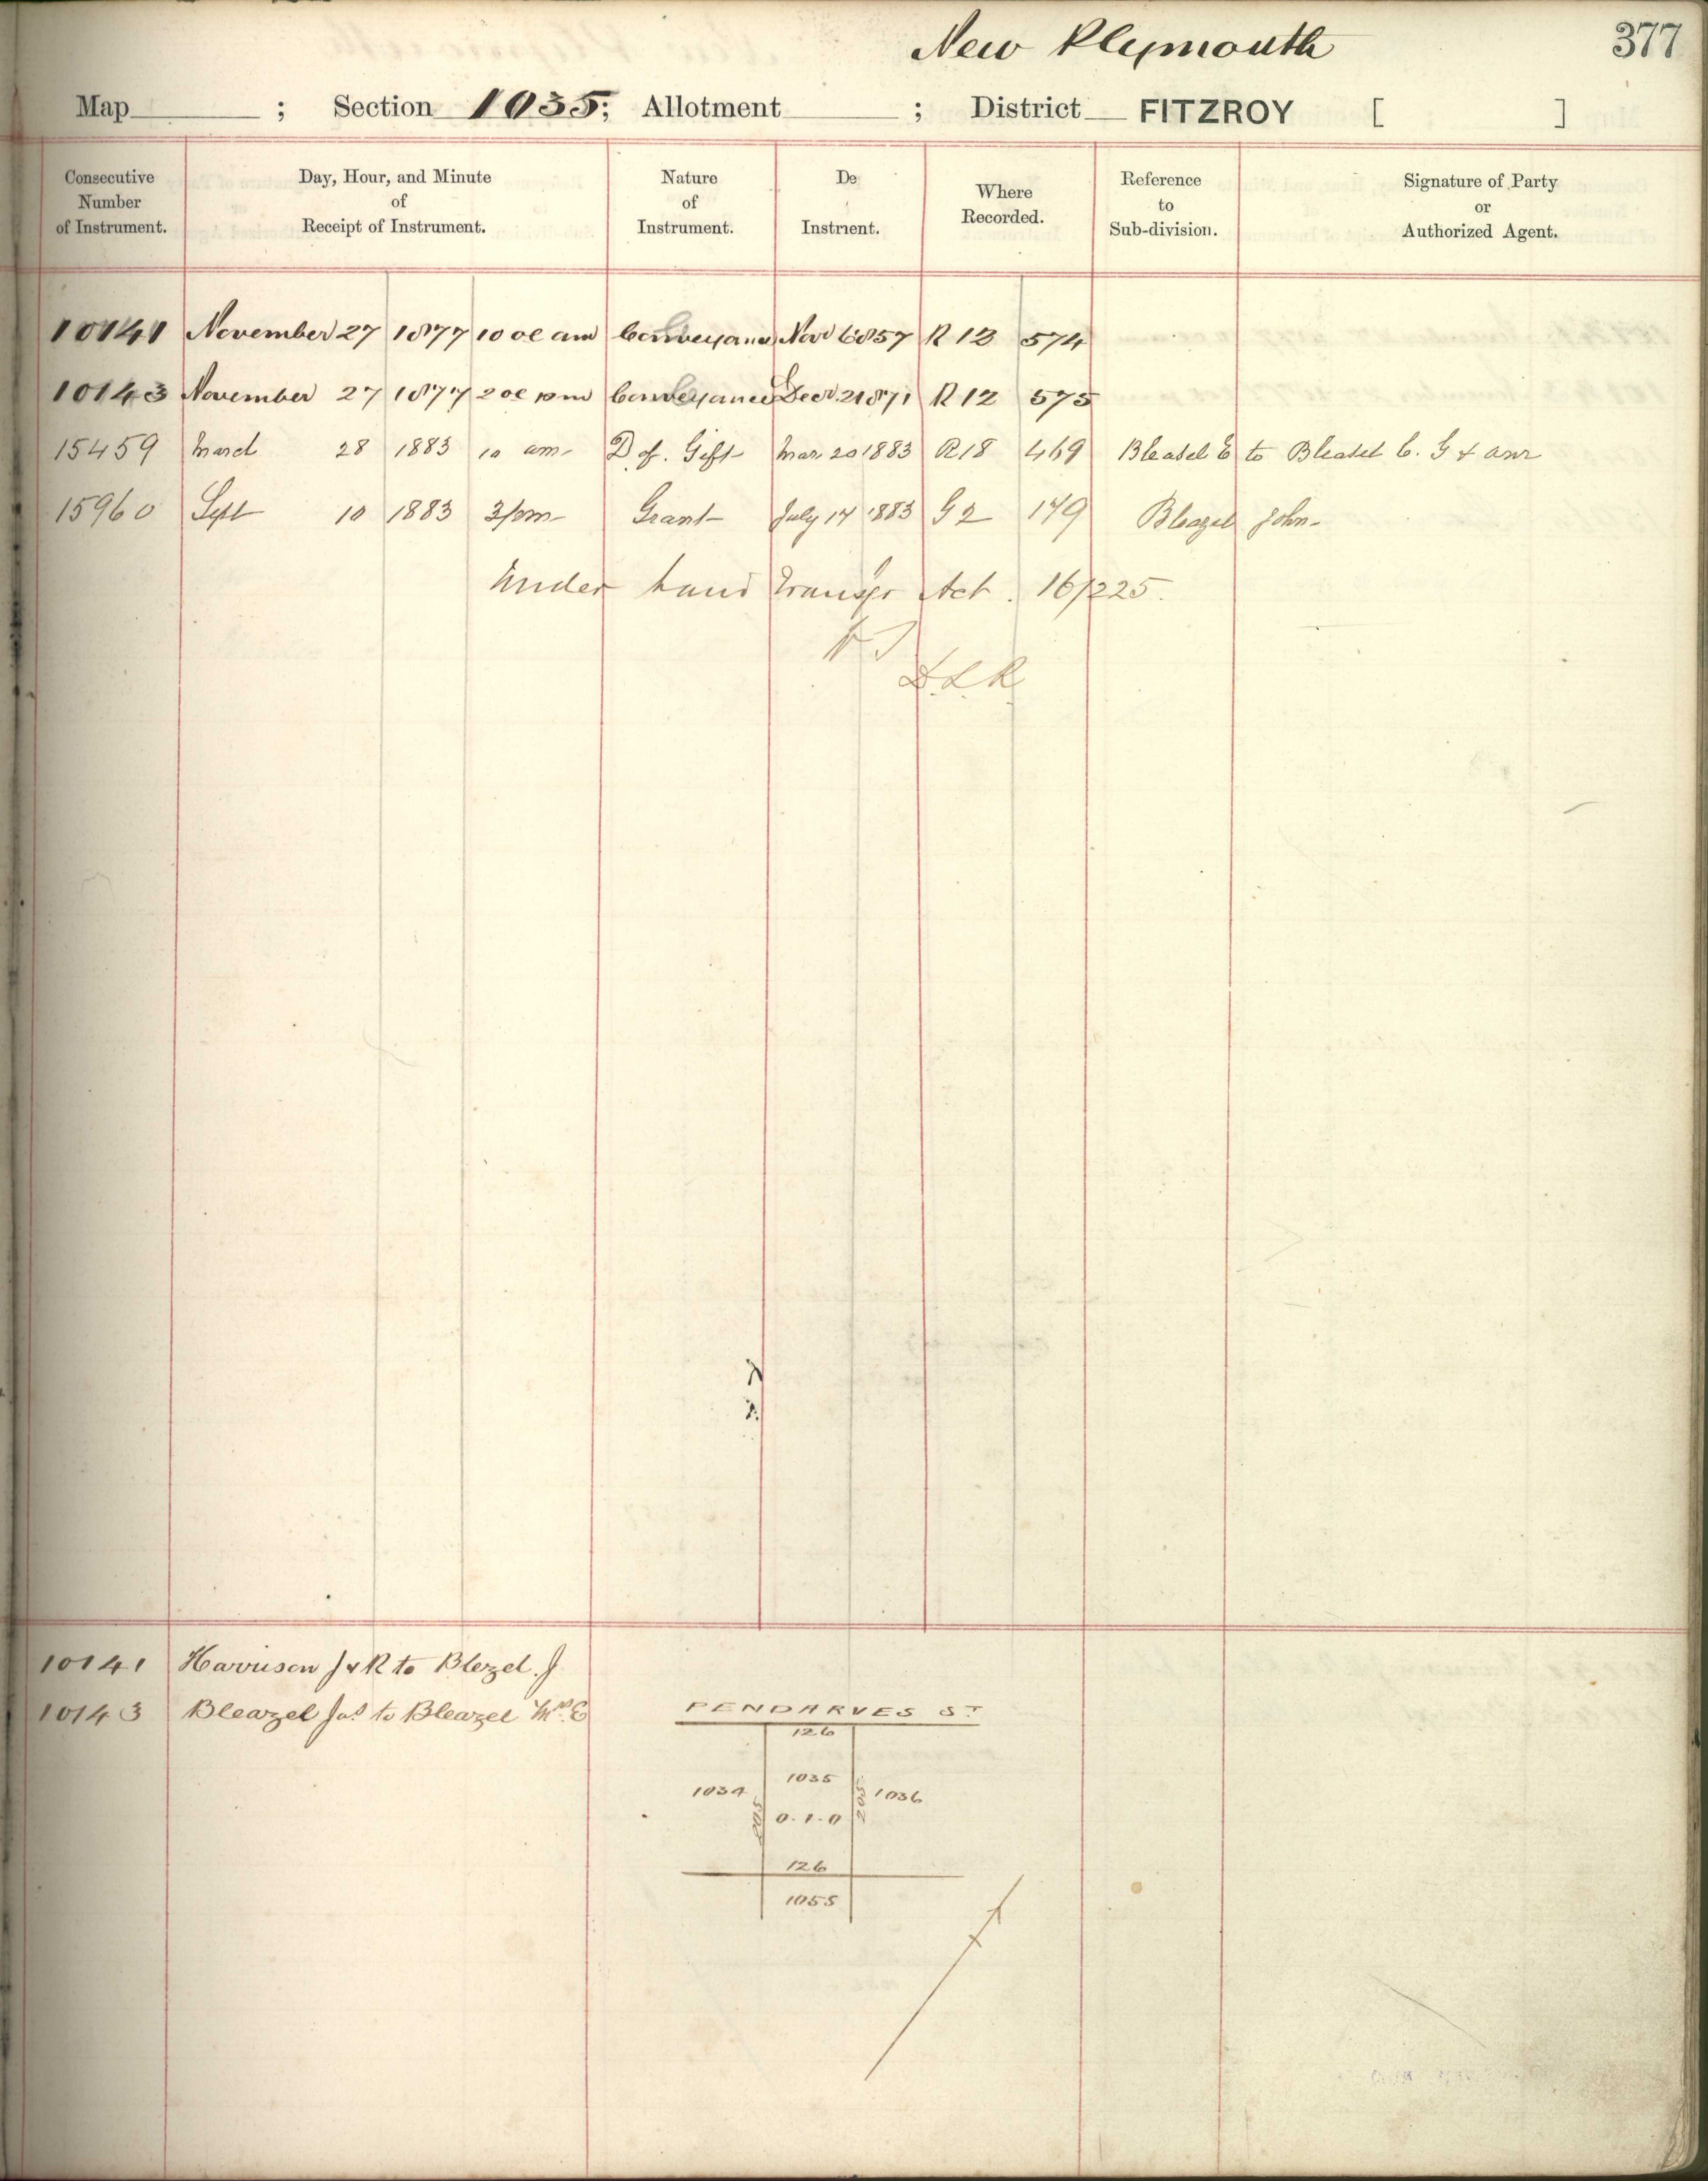 New Plymouth 377
Map ; Section 1035; Allotment ; District FITZROY [ ]
Consecutive Number of Instrument.
Day, Hour, and Minute of Receipt of Instrument.
Nature of Instrument.
De Instrument.
Where Recorded.
Reference to Sub-division.
Signature of Party or Authorized Agent.
10141 November 27 1877 10 oc am Conveyance Nov 6 1857 R 12 574
10143 November 27 1877 2 oc pm Conveyance Decr. 2 1871 R 12 575
15459 March 28 1883 10 am D of. Gift Mar. 20 1883 R18 469 Bleasel E to Bleasel C. G & anr
15960 Sept 10 1883 3 pm Grant July 14 1883 G 2 149 Bleazel John
Under Land Transfr Act. 16/225.
D.L.R.
10141 Harrison J & R to Blezel. J
10143 Bleazel Jas to Bleazel Mrs. E
PENDARVES ST
126
1034 1035 1036
0.1.0
126
1055